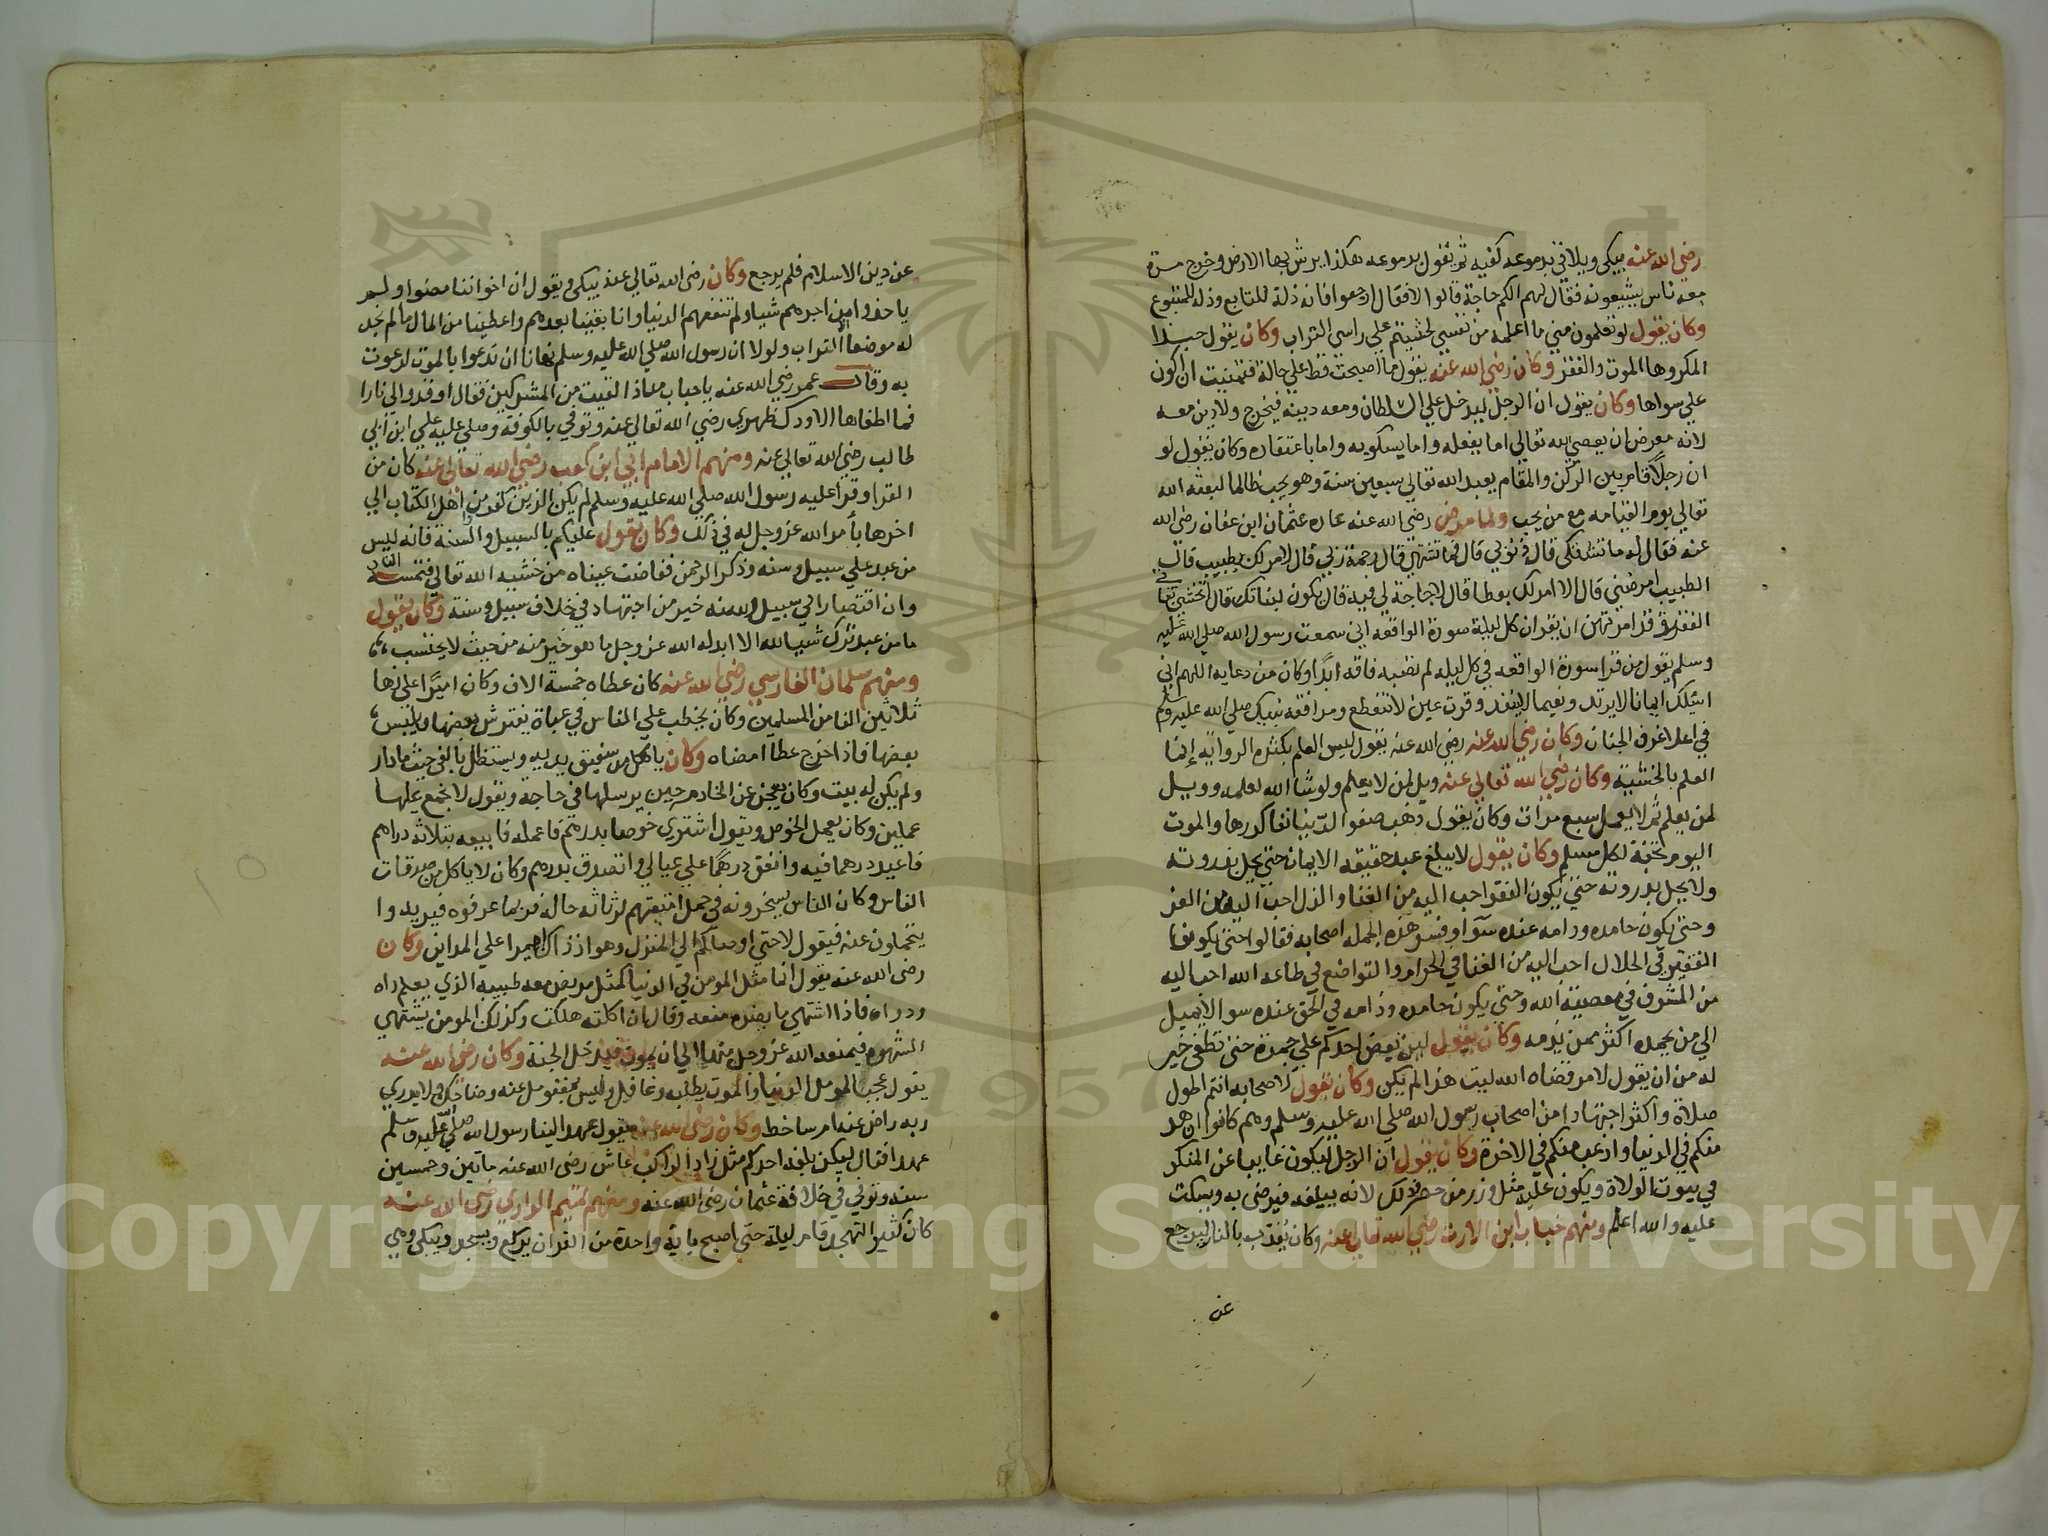 رضي الله عنه يبكي ويلاقي بدموعه كفيه ثم يقول بدموعه هكذا يرش بها الارض وخرج مرة
معه ناس يشيعونه فقال لهم الكم حاجة قالوا لا فقال ارجعوا فانه ذلة للتابع وذلة للمتبوع
وكان يقول لو تعلمون مني ما اعلمه من نفسي لحثيتم علي راسي التراب وكان يقول حبذا
المكروهان الموت والفقر وكان رضي الله عنه يقول ما اصبحت قط علي حالة فتمنيت ان اكون
علي سواها وكان يقول ان الرجل ليدخل علي السلطان ومعه دينه فيخرج ولا دين معه
لانه معرض ان يعصي الله تعالي اما بفعله واما بسكوته واما باعتقاده وكان يقول لو
ان رجلا قام بين الركن والمقام يعبد الله تعالي سبعين سنة وهو يحب ظالما لبعثه الله
تعالي يوم القيامه مع من يحب ولما مرض رضي الله عنه عاده عثمان ابن عفان رضي الله
عنه فقال له ما تشتكي قال ذنوبي قال فما تشتهي قال رحمة ربي قال الا امر لك بطبيب قال
الطبيب امرضني قال الا امر لك بعطا قال لا حاجة لي فيه قال يكون لبناتك قال اتخشي علي بناتي
الفقر وقد امرتهن ان يقران كل ليلة سورة الواقعه اني سمعت رسول الله صلي الله عليه
وسلم يقول من قرا سورة الواقعه في كل ليله لم تصبه فاقه ابدا وكان من دعايه اللهم اني
اسئلك ايمانا لا يرتد ونعيما لا ينفد وقرت عين لا تنقطع ومرافقة نبيك صلي الله عليه وسلم
في اعلا غرف الجنان وكان رضي الله عنه رضي الله عنه يقول ليس العلم بكثرة الرواية إنما
العلم بالخشية وكان رضي الله تعالي عنه ويل لمن لا يعلم ولو شا الله لعلمه وويل
لمن يعلم ثم لا يعمل سبع مرات وكان يقول ذهب صفوا الدنيا بقا كدرها والموت
اليوم تحفة لكل مسلم وكان يقول لا يبلغ عبد حقيقه الايمان حتي يحل بذروته
ولا يحل بذروته حتي يكون الفقر احب اليه من الغنا والذل احب اليه من العز
وحتي يكون حامده وذامه عنده سوآ وفسر هذه الجمله اصحابه فقالوا حتي يكون
الفقر في الحلال احب اليه من الغنا في الحرام والتواضع في طاعه الله احب اليه
من الشرف في معصية الله وحتي يكون حامده وذامه في الحق عنده سوا لا يميل
الي من يحمده اكثر ممن يذمه وكان يقول لين يعض احدكم علي جمرة حتي تطفي خير
له من ان يقول لامر قضاه الله ليت هذا لم يكن وكان يقول لاصحابه انتم اطول
صلاة واكثر اجتهادا من اصحاب رسول الله صلي الله عليه وسلم وهم كانوا ازهد
منكم في الدنيا وارغب منكم في الاخرة وكان يقول ان الرجل ليكون غايبا عن المنكر
في بيوت الولاة ويكون عليه مثل وزر من حضر ذلك لانه يبلغه فيرضي به ويسكت
عليه والله اعلم ومنهم خباب ابن الارت رضي الله تعالي عنه وكان يعذب بالنار ليرجع
عن
عن دين الاسلام فلم يرجع وكان رضي الله تعالي عنه يبكي ويقول ان اخواننا مضوا ولم
ياخذوا من اجرهم شيا ولم تنقصهم الدنيا وانا بقينا بعدهم واعطينا من المال ما لم نجد
له موضعا الا التراب ولولا ان رسول الله صلي الله عليه وسلم نهانا ان ندعوا بالموت لدعوت
به وقال عمر رضي الله عنه يا خباب ماذا لقيت من المشركين فقال اوقدوا لي نارا
فما اطفاها الا ودك ظهري رضي الله تعالي عنه وتوفي بالكوفة وصلي عليه علي ابن ابي
طالب رضي الله تعالي عنه ومنهم الامام ابي ابن كعب رضي الله تعالي عنه كان من
القرا وقرا عليه رسول الله صلي الله عليه وسلم لم يكن الذين كفرو من اهل الكتاب الي
اخرها بأمر الله عز وجل له في ذلك وكان يقول عليكم بالسبيل والسنة فانه ليس
من عبد علي سبيل وسنه وذكر الرحمن ففاضت عيناه من خشيه الله تعالي فتمسه النار
وان اقتصارا في سبيل وسنه خير من اجتهاد في خلاف سبيل وسنة وكان يقول
ما من عبد ترك شيا لله الا ابدله الله عز وجل ما هو خير منه من حيث لا يحتسب
ومنهم سلمان الفارسي رضي الله عنه كان عطاه خمسة الاف وكان اميرا علي زها
ثلاثين الفا من المسلمين وكان يخطب علي الناس في عباة يفترش بعضها ويلبس
بعضها فاذا خرج عطا امضاه وكان ياكل من سفيق يديه ويستظل بالفي حيث ما دار
ولم يكن له بيت وكان يعجن عن الخادم حين يرسلها في حاجة ويقول لا نجمع عليها
عملين وكان يعمل الخوص ويقول اشتري خوصا بدرهم فاعمله فابيعه بثلاثه دراهم
فاعيد درهما فيه وانفق درهما علي عيالي واتصدق بدرهم وكان لا ياكل من صدقات
الناس وكان الناس يسخرونه في حمل امتعتهم لرثاثه حاله فربما عرفوه فيريدوا
يحملون عنه فيقول لا حتي اوصلكم الي المنزل وهو اذ ذاك امير علي المداين وكان
رضي الله عنه يقول انما مثل المومن في الدنيا كمثل مريض معه طبيبه الذي يعلم داه
ودواه فاذا اشتهي ما يضره منعه وقال ان اكلته هلكت وكذلك المومن يشتهي
الشهوه فيمنعه الله عز وجل منها الي ان يموت فيدخل الجنة وكان رضي الله عنه
يقول عجبا لمومل الدنيا والموت يطلبه وغافل وليس بمغفول عنه وضاحك ولا يدري
ربه راض عنه ام ساخط وكان رضي الله عنه يقول عهد الينا رسول الله صلي الله عليه وسلم
عهدا فقال ليكن بلغه احدكم مثل زاد الراكب عاش رضي الله عنه ماتين وخمسين
سنه وتوفي في خلافة عثمان رضي الله عنه ومنهم تميم الداري رضي الله عنه
كان كثير التهجد قام ليلة حتي اصبح باية واحدة من القران يركع ويسجد ويبكي وهي
Copyright © King Saud University
1957